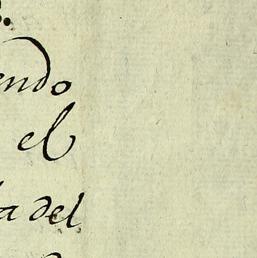 endo
el
a del